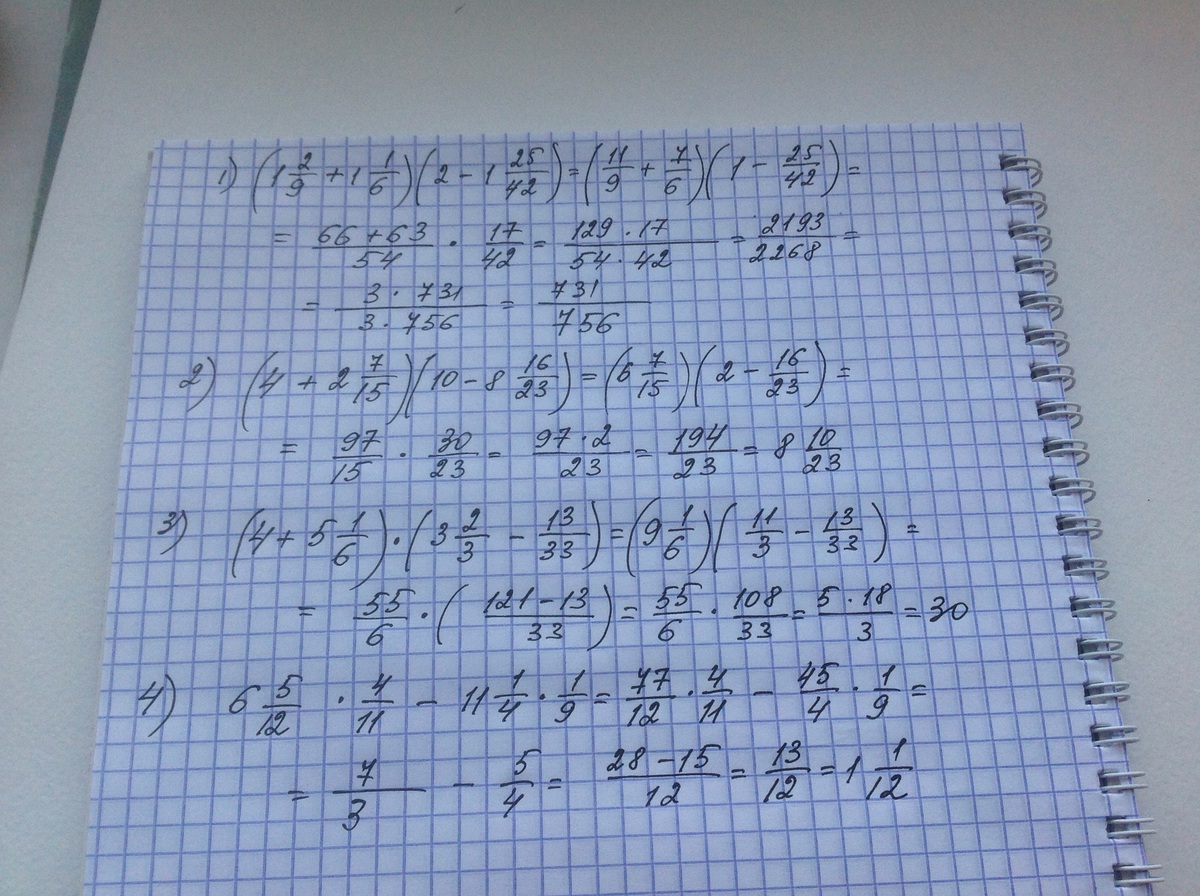 1) (1 2/9 + 1 1/6)(2 - 1 25/42) = (11/9 + 7/6)(1 - 25/42) =
= (66 + 63)/54 · 17/42 = (129 · 17)/(54 · 42) = 2193/2268 =
= (3 · 731)/(3 · 756) = 731/756
2) (4 + 2 7/15)(10 - 8 16/23) = (6 7/15)(2 - 16/23) =
= 97/15 · 30/23 = (97 · 2)/23 = 194/23 = 8 10/23
3) (4 + 5 1/6) · (3 2/3 - 13/33) = (9 1/6)(11/3 - 13/33) =
= 55/6 · ((121 - 13)/33) = 55/6 · 108/33 = (5 · 18)/3 = 30
4) 6 5/12 · 4/11 - 11 1/4 · 1/9 = 77/12 · 4/11 - 45/4 · 1/9 =
= 7/3 - 5/4 = (28 - 15)/12 = 13/12 = 1 1/12